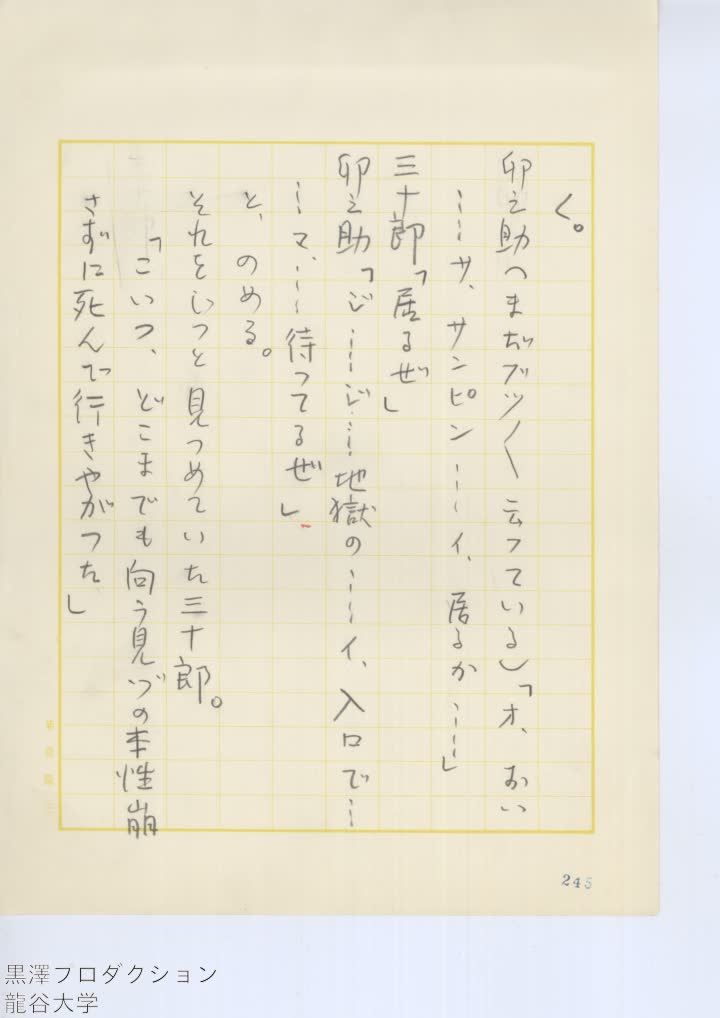 く。
卯之助(まだブツ〱云っている)「オ、おい
……サ、サンピン……イ、居るか……」
三十郎「居るぜ」
卯之助「ジ……ジ……地獄の……イ、入口で…
…マ、……待ってるぜ」
と、のめる。
それをじっと見つめていた三十郎。
「こいつ、どこまでも向う見づの本性崩
さずに死んで行きやがった」
245
黒澤プロダクション
龍谷大学